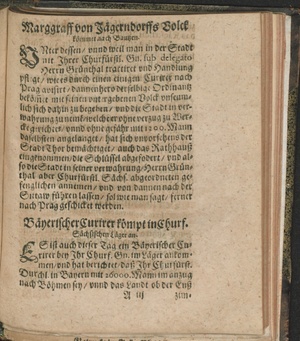 Marggraff von Jägerndorffs Volck
kömmet nach Bautzen.
UNter dessen / vnnd weil man in der Stadt
mit Ihrer Churfürstl. Gn. sub delegato
Herrn Grünthal tractiret vnd Handlung
pfligt / wie es durch einen eingen Curirer nach
Prag avisirt / dannenhero derselbige Ordinantz
bekömt mit seinen vntergebenen Volck
sich dahin zu begeben / vnd die Stadt in ver-
wahrung zu nemē / welcher ohne verzug zu Wer-
cke gerichtet / vnnd ohngefähr mit 1200. Mann
daselbsten angelanget / hat sich vnversehens der
Stadt Thor bemächtiget / auch das Rathhauß
eingenommen / die Schlüssel abgefodert / vnd al-
so die Stadt in seiner verwahrung / Herrn Grün-
thal aber Churfürstl. Sächs. abgeordneten ge-
fenglichen annemen / vnd von dannen nach der
Sittaw führen lassen / sol wie man sagt / ferner
nach Prag geschicket werden.
Bäyerischer Curirer kömpt in Churf.
Sächsischen Läger an.
ES ist auch dieser Tag ein Bäyerischer Cu-
rirer bey Ihr Churf. Gn. im Läger ankom-
men / vnd hat berichtet / daß Ihr Churfürst.
Durchl. in Bayern mit 26000. Mann im anzug
nach Böhmen sey / vnnd das Landt ob der Enß
A iij zim-